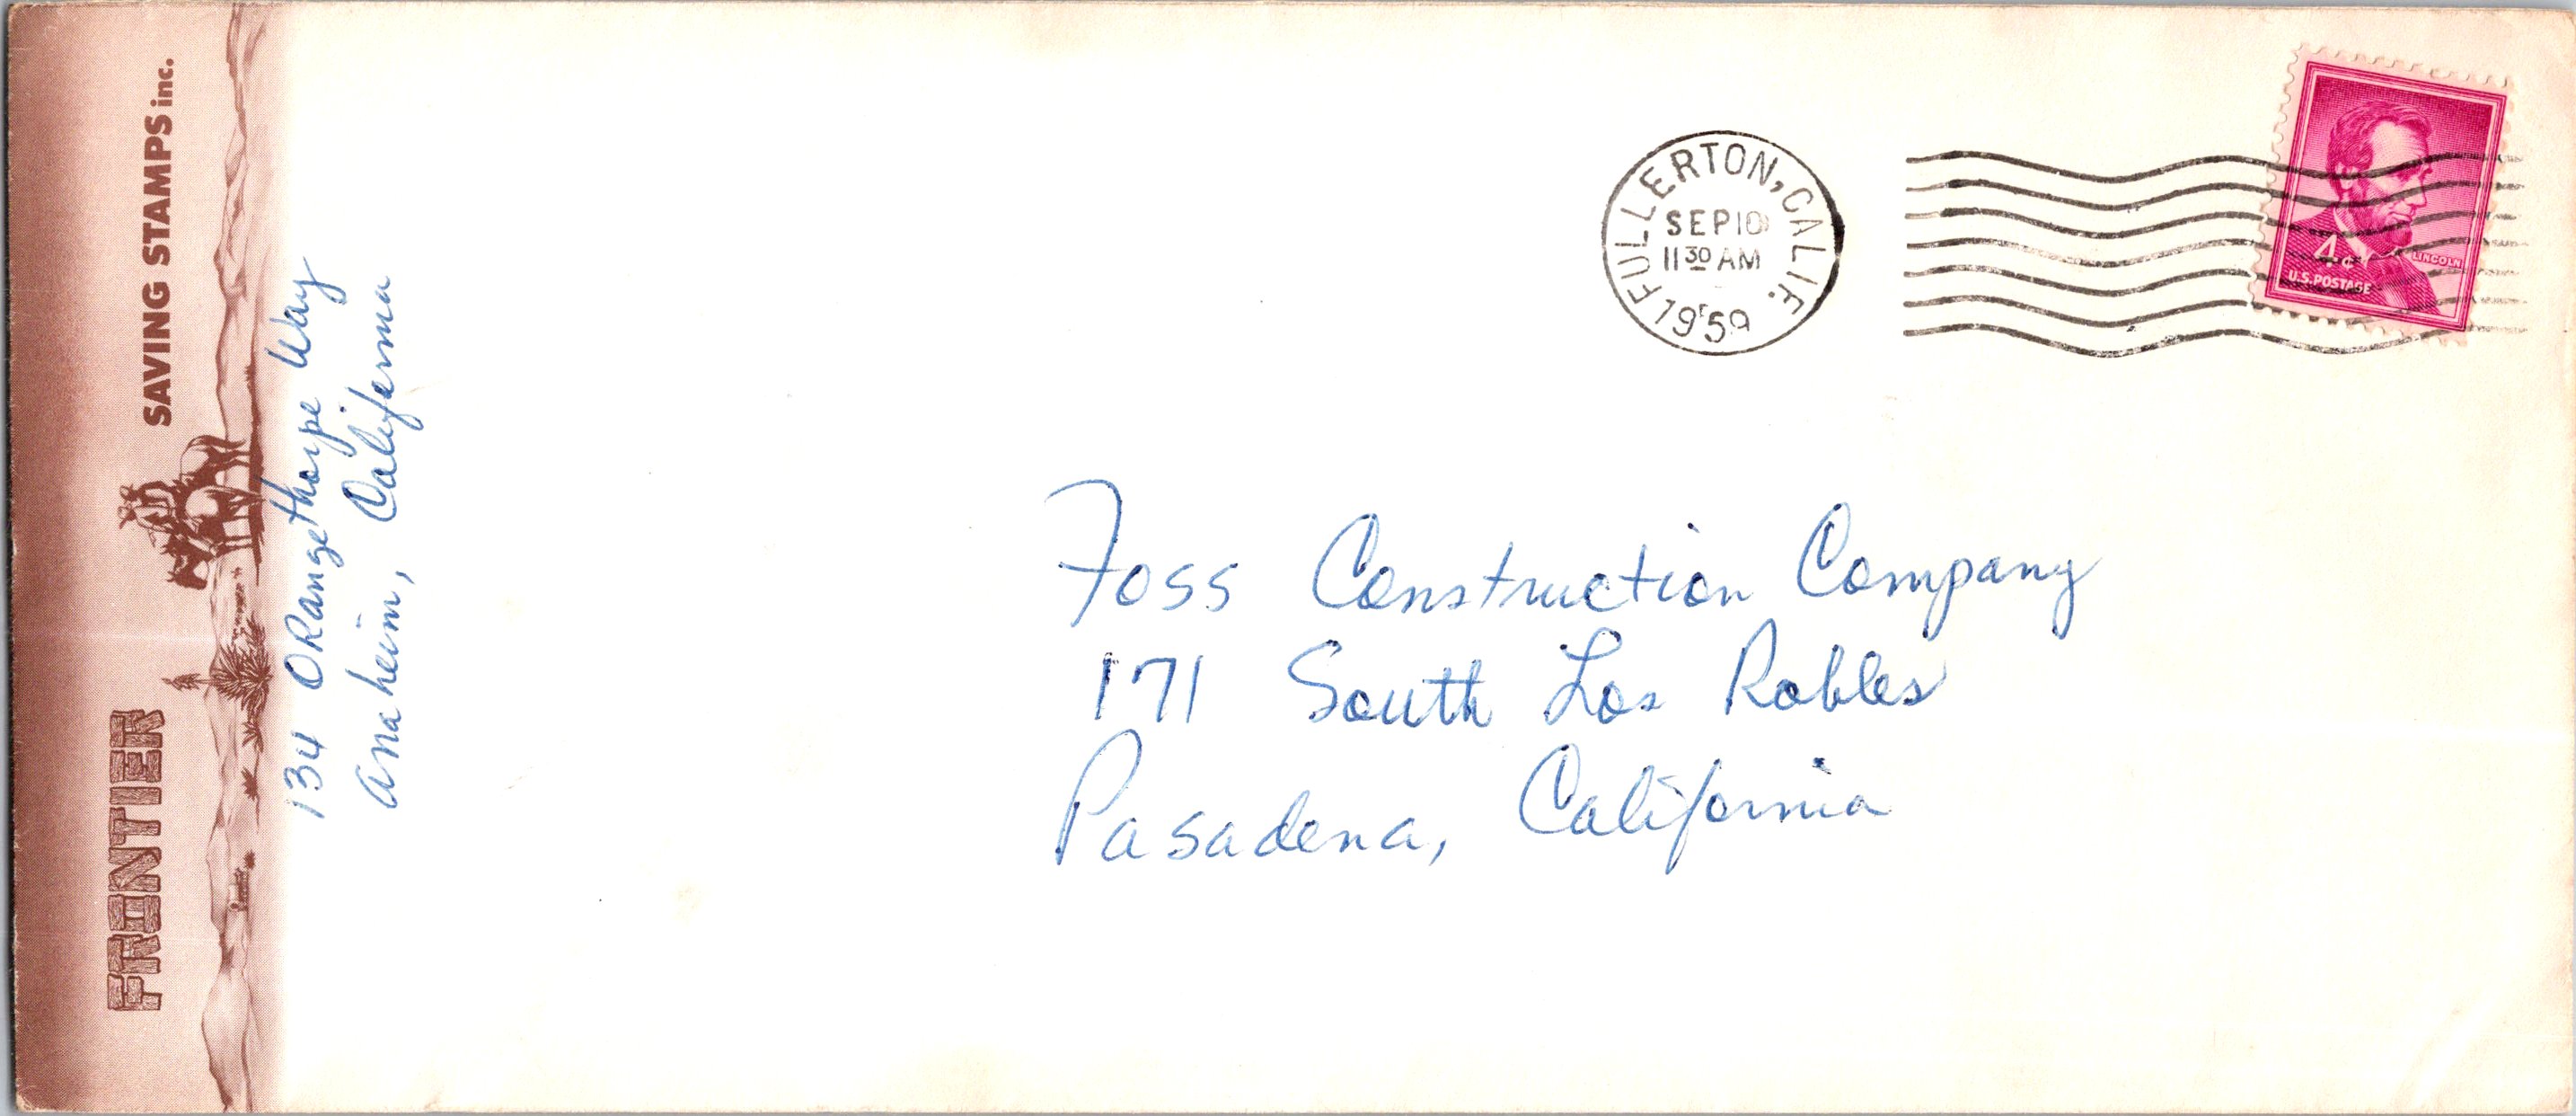 FRONTIER
SAVING STAMPS inc.
134 ORangethorpe Way
Anaheim, California
FULLERTON, CALIF.
SEP 10
11 30 AM
1959
4¢
LINCOLN
U.S. POSTAGE
Foss Construction Company
171 South Los Robles
Pasadena, California